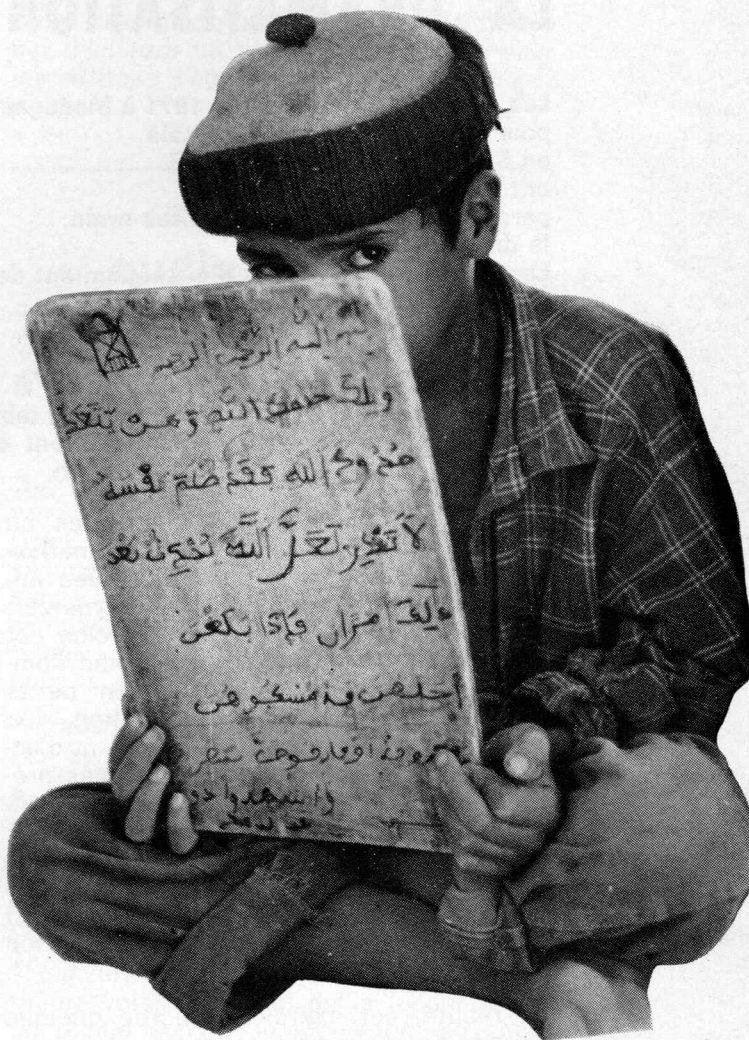 بسم الله الرحمن الرحيم
وتلك حدود الله ومن يتعد
حدود الله فقد ظلم نفسه
لا تدري لعل الله يحدث بعد
ذلك امران فإذا بلغن
أجلهن فأمسكوهن
بمعروف او فارقوهن بمعر
واشهدوا ذو